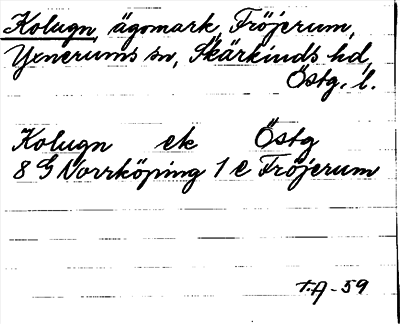 Kolugn, ägomark, Fröjerum,
Yxnerums sn, Skärkinds hd,
Östg. l.
Kolugn ek Östg
8 G Norrköping 1 e Fröjerum
T.A-59